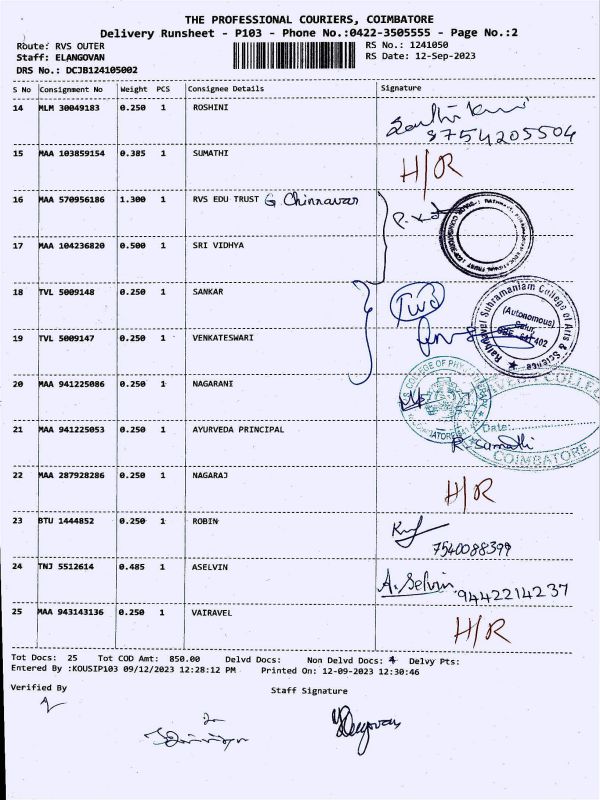 THE PROFESSIONAL COURIERS, COIMBATORE
Delivery Runsheet - P103 - Phone No.:0422-3505555 - Page No.:2
Route: RVS OUTER RS No.: 1241050
Staff: ELANGOVAN RS Date: 12-Sep-2023
DRS No.: DCJB124105002
S No Consignment No Weight PCS Consignee Details Signature
14 MLM 30049183 0.250 1 ROSHINI
8754205504
15 MAA 103859154 0.385 1 SUMATHI H/R
16 MAA 570956186 1.300 1 RVS EDU TRUST G. Chinnavar
17 MAA 104236820 0.500 1 SRI VIDHYA
18 TVL 5009148 0.250 1 SANKAR
Rathnavel Subramaniam College of Arts & Science
(Autonomous)
Sulur,
CBE - 641 402
19 TVL 5009147 0.250 1 VENKATESWARI
20 MAA 941225086 0.250 1 NAGARANI
COLLEGE OF PHYSIOTHERAPY
21 MAA 941225053 0.250 1 AYURVEDA PRINCIPAL
Date:
R. Sumathi
COIMBATORE
22 MAA 287928286 0.250 1 NAGARAJ H/R
23 BTU 1444852 0.250 1 ROBIN
7540088399
24 TNJ 5512614 0.485 1 ASELVIN A. Selvin 9442214237
25 MAA 943143136 0.250 1 VAIRAVEL H/R
Tot Docs: 25 Tot COD Amt: 850.00 Delvd Docs: Non Delvd Docs: 4 Delvy Pts:
Entered By :KOUSIP103 09/12/2023 12:28:12 PM Printed On: 12-09-2023 12:30:46
Verified By Staff Signature